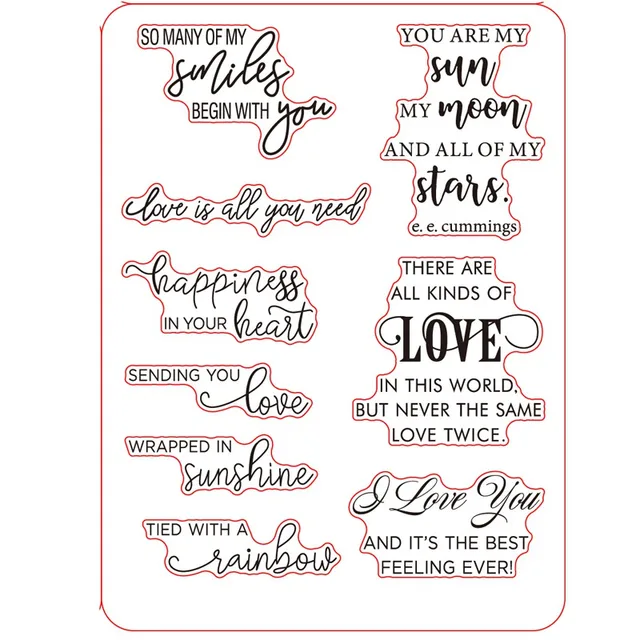 SO MANY OF MY
smiles
BEGIN WITH you
love is all you need
happiness
IN YOUR heart
SENDING YOU
love
WRAPPED IN
sunshine
TIED WITH A
rainbow
YOU ARE MY
sun
MY moon
AND ALL OF MY
stars.
e. e. cummings
THERE ARE
ALL KINDS OF
LOVE
IN THIS WORLD,
BUT NEVER THE SAME
LOVE TWICE.
I Love You
AND IT'S THE BEST
FEELING EVER!